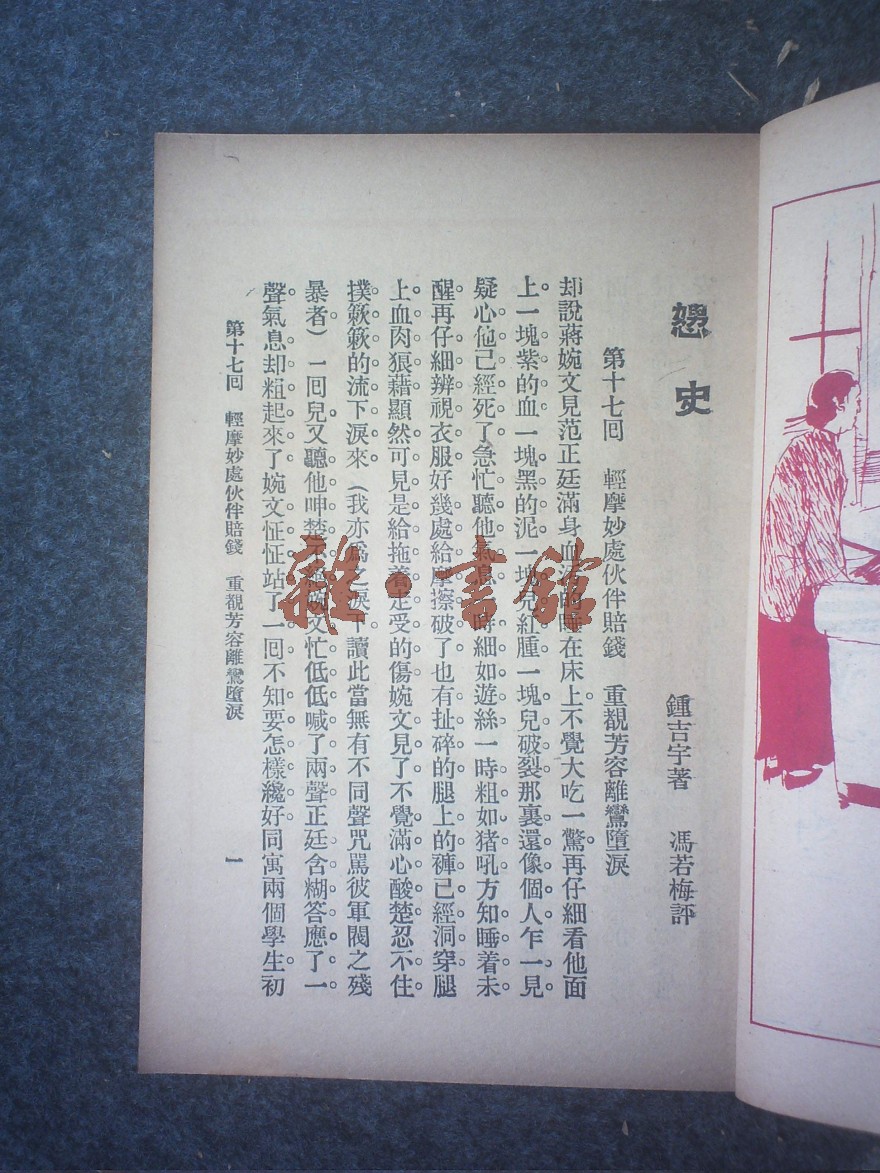 史
鍾吉宇著　馮若梅評
第十七囘　輕摩妙處伙伴賠錢　重覩芳容離鸞墮淚
却說蔣婉文見范正廷滿身血污的睡在床上不覺大吃一驚再仔細看他面
上一塊紫的血一塊黑的泥一塊兒紅腫一塊兒破裂那裏還像個人乍一見
疑心他已經死了急忙聽他氣息一時細如遊絲一時粗如猪吼方知睡着未
醒再仔細辨視衣服好幾處給摩擦破了也有扯碎的腿上的褲已經洞穿腿
上血肉狼藉顯然可見是給拖着走受的傷婉文見了不覺滿心酸楚忍不住
撲簌簌的流下淚來（我亦爲之淚下讀此當無有不同聲咒罵彼軍閥之殘
暴者）一囘兒又聽他呻楚不絕婉文忙低低喊了兩聲正廷含糊答應了一
聲氣息却粗起來了婉文怔怔站了一囘不知要怎樣纔好同寓兩個學生初
第十七囘　輕摩妙處伙伴賠錢　重覩芳容離鸞墮淚　一
雜·書館